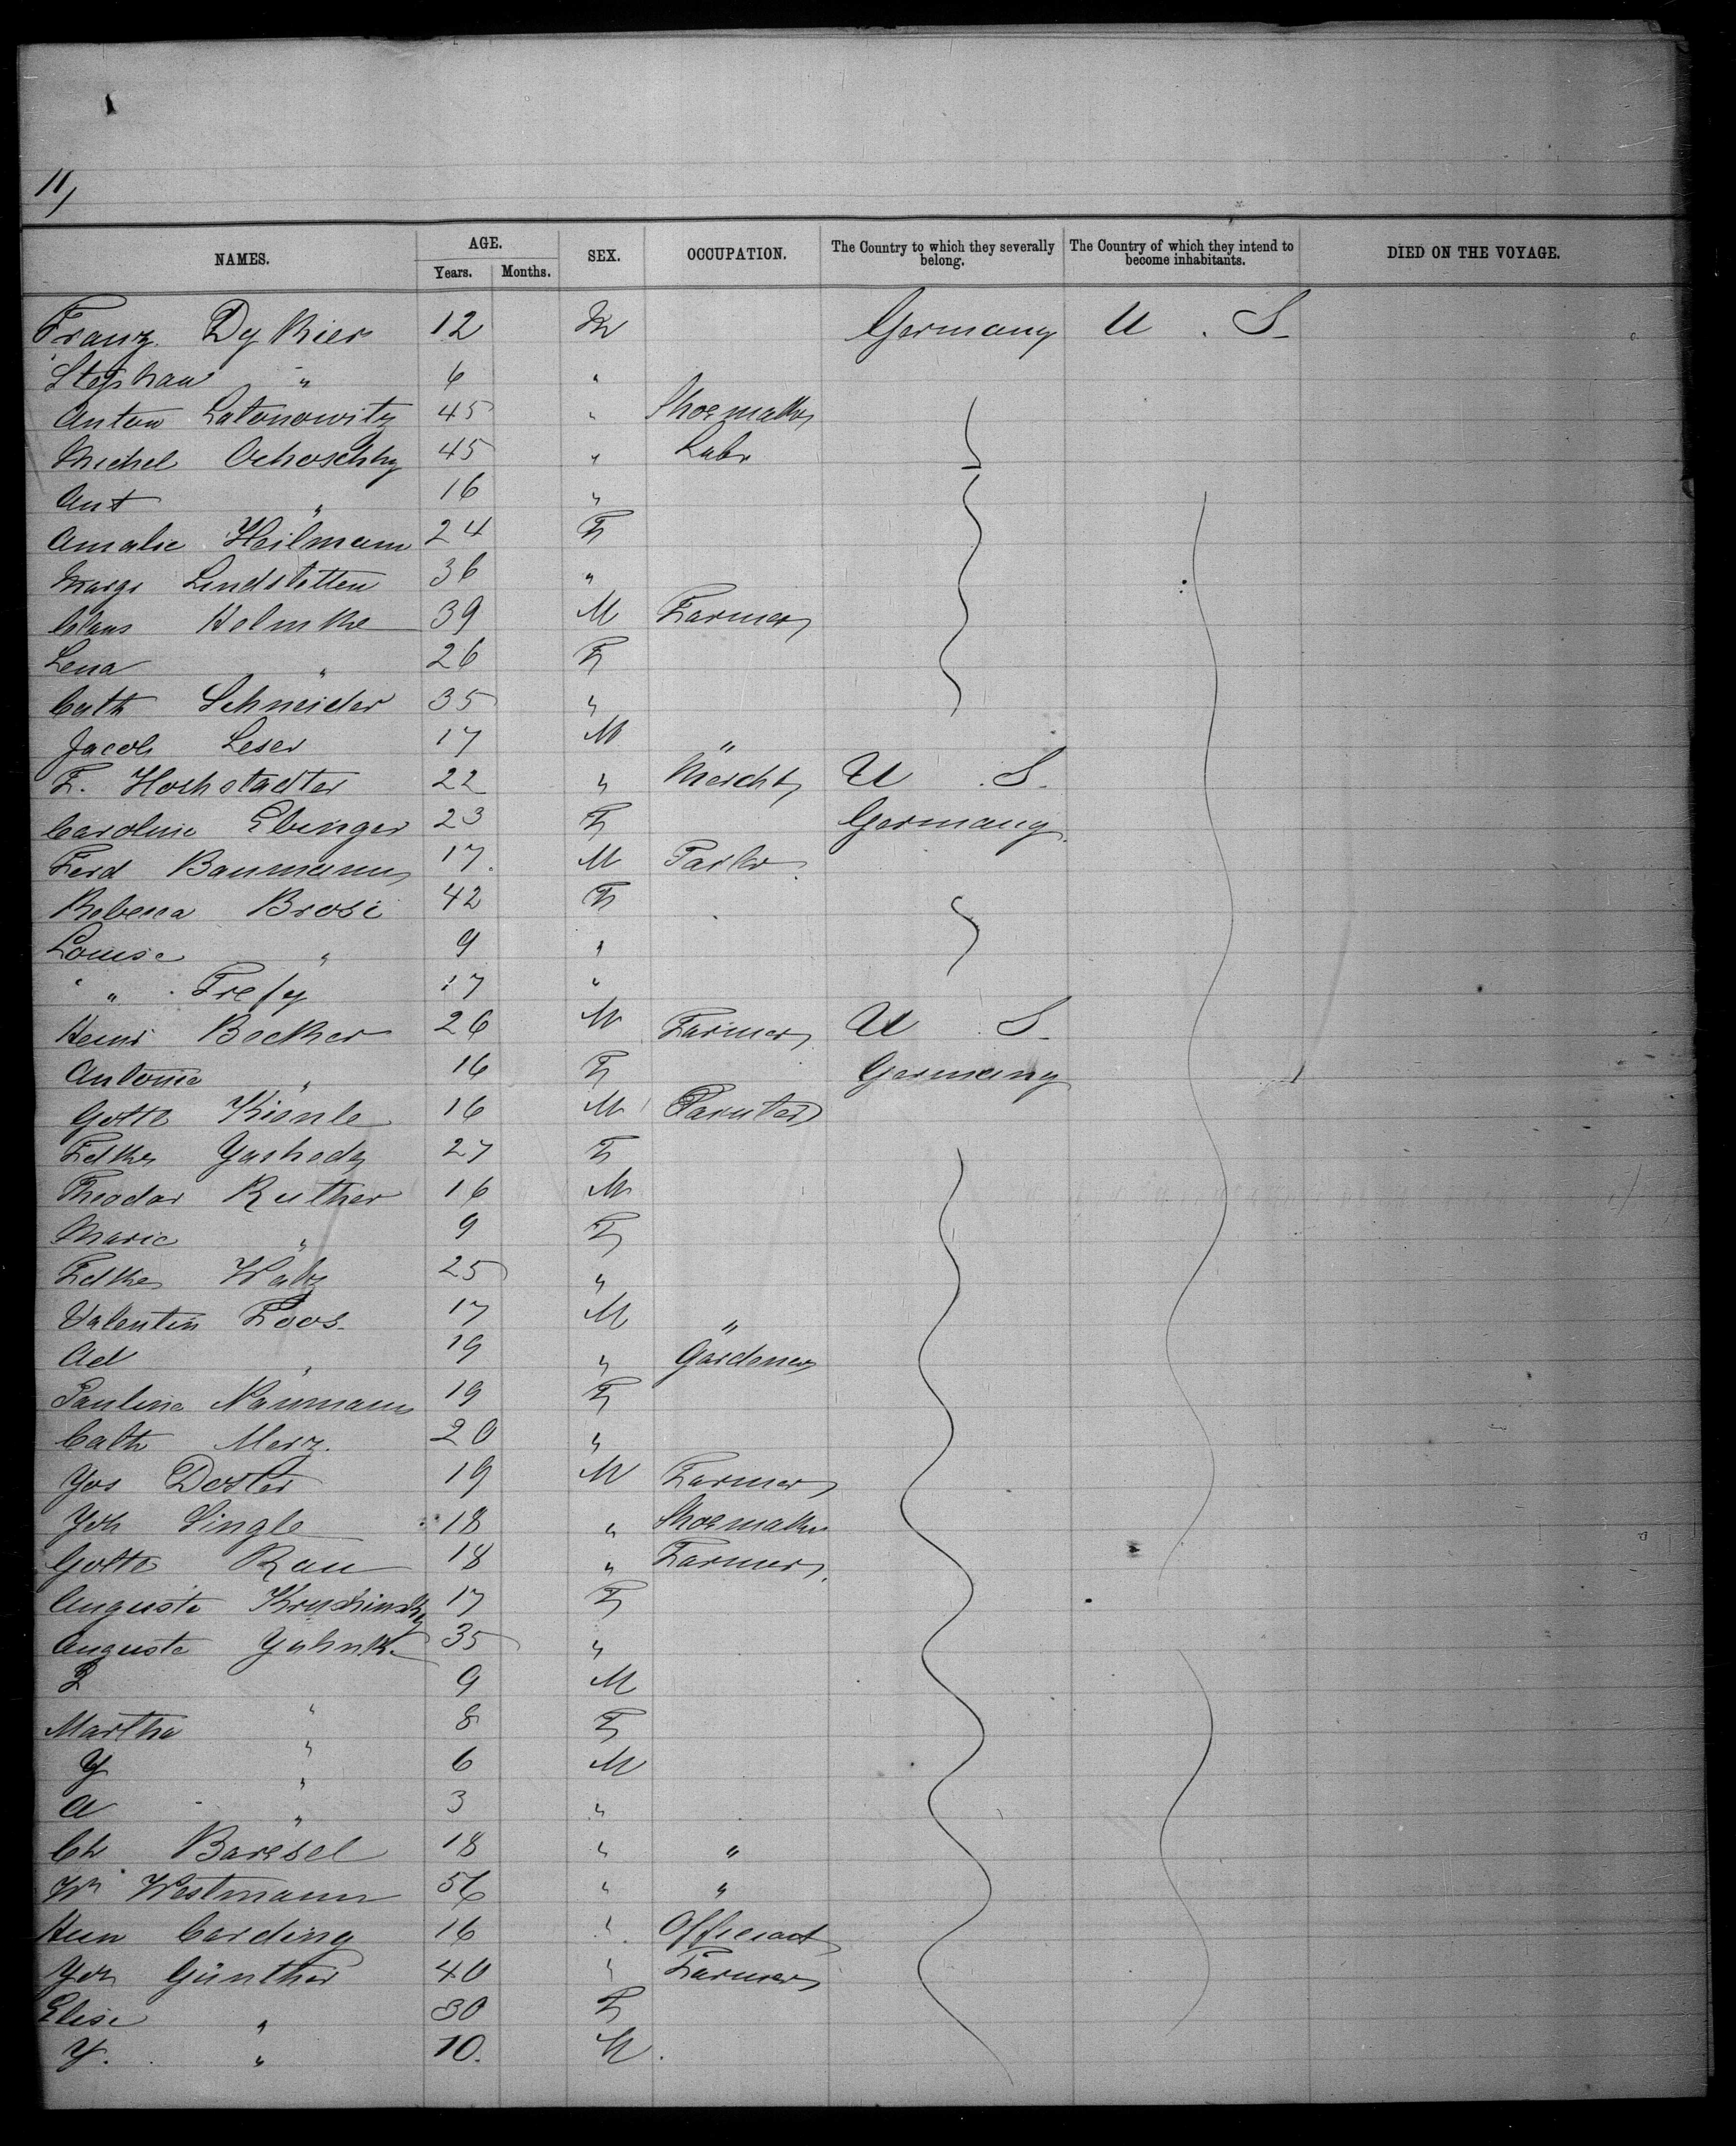 11,
NAMES. AGE. Years. Months. SEX. OCCUPATION. The Country to which they severally belong. The Country of which they intend to become inhabitants. DIED ON THE VOYAGE.
Franz Dykier 12 M Germany U. S.
Stephan " 6 "
Anton Latonowitz 45 " Shoemaker
Michel Ochoschky 45 " Labr
Ant " 16 "
Amalie Heilmann 24 F
Margr Lindstetten 36 "
Claus Helmke 39 M Farmer
Lena " 26 F
Cath Schneider 35 "
Jacob Leser 17 M "
F. Hochstadter 22 " Mercht U. S.
Caroline Ebinger 23 F Germany
Ferd Baumann 17 M
Rebecca Brosi 42 F
Louise " 9 "
" " 17 "
Heinr Becker 26 M Farmer U. S.
Antonie " 16 F Germany
Gottl Kienle 16 M
27 F
Theodor Ruther 16 M
Marie " 9 F
25 "
Valentin Loos 17 M "
Ad " 19 " Gardener
Pauline Naumann 19 F
Cath Merz. 20 "
Jos Doster 19 M Farmer
Joh Single 18 " Shoemaker
Gottl Rau 18 " Farmer
Auguste Kruschinsky 17 F
Auguste Jahnke 35 "
9 M
Martha " 8 F
J " 6 M
A " 3 "
Ch Baresel 18 " "
Wm Westmann 56 " "
Carding 16 "
Joh Günther 40 " Farmer
Elise " 30 F
J. " 10. M.